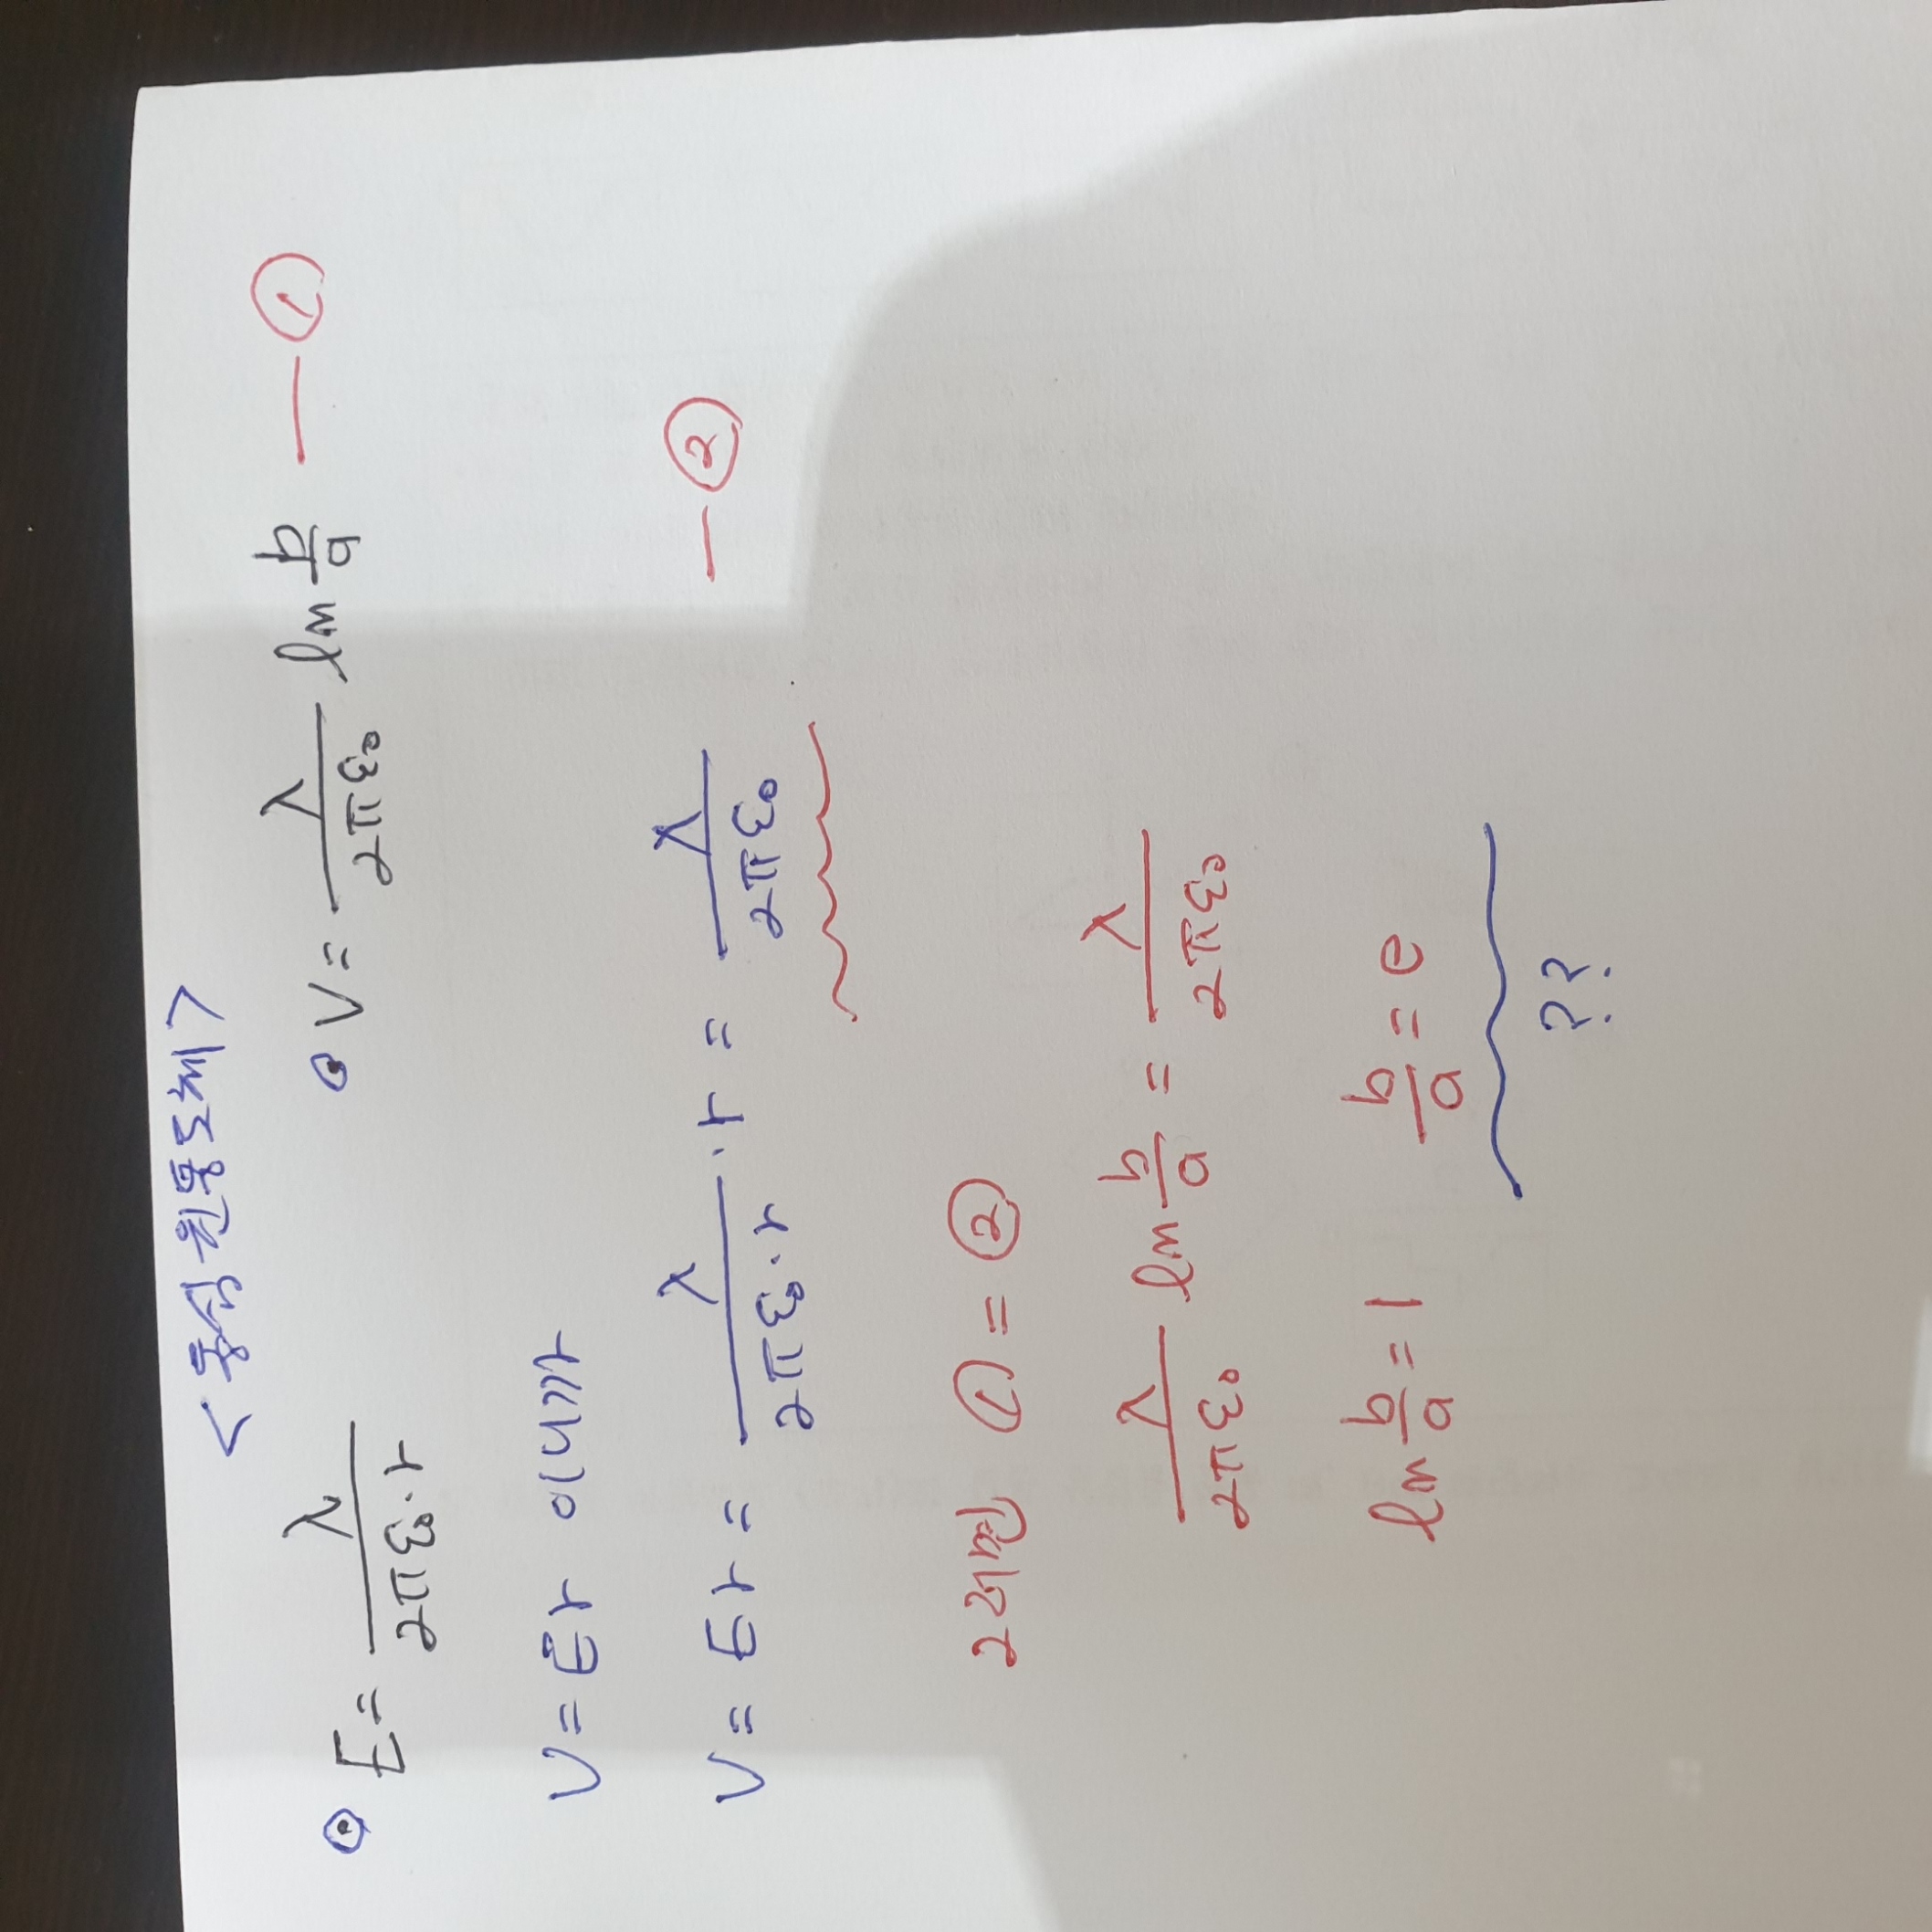 <동심원통도체>
⊙ E = λ/2πε₀·r
⊙ V = λ/2πε₀ ln b/a — ①
V = Er 이니까
V = Er = λ/2πε₀·r · r = λ/2πε₀ — ②
① = ②
λ/2πε₀ ln b/a = λ/2πε₀
ln b/a = 1 b/a = e
??